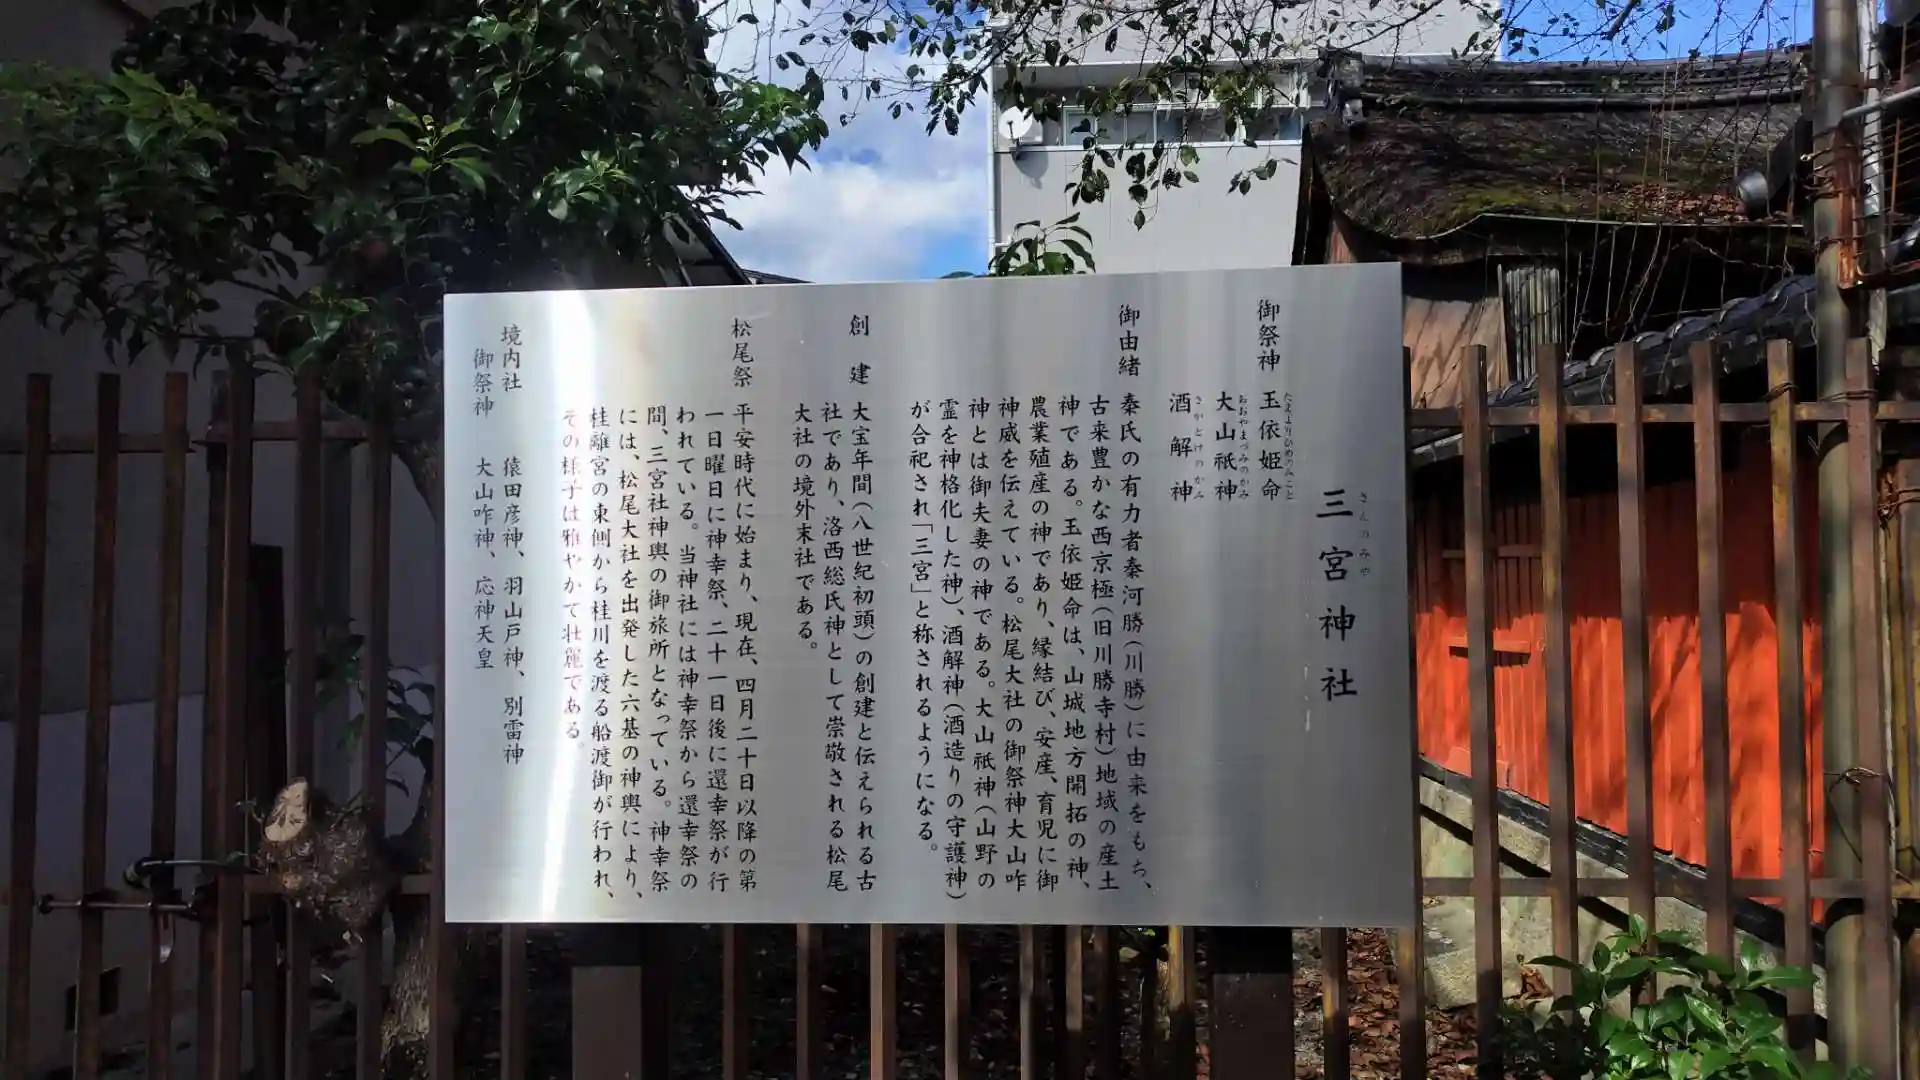 三宮神社
さんのみや
御祭神 玉依姫命
たまよりひめのみこと
大山祇神
おおやまづみのかみ
酒解神
さかとけのかみ
御由緒 秦氏の有力者秦河勝(川勝)に由来をもち、
古来豊かな西京極(旧川勝寺村)地域の産土
神である。玉依姫命は、山城地方開拓の神、
農業殖産の神であり、縁結び、安産、育児に御
神威を伝えている。松尾大社の御祭神大山咋
神とは御夫妻の神である。大山祇神(山野の
霊を神格化した神)、酒解神(酒造りの守護神)
が合祀され「三宮」と称されるようになる。
創建 大宝年間(八世紀初頭)の創建と伝えられる古
社であり、洛西総氏神として崇敬される松尾
大社の境外末社である。
松尾祭 平安時代に始まり、現在、四月二十日以降の第
一日曜日に神幸祭、二十一日後に還幸祭が行
われている。当神社には神幸祭から還幸祭の
間、三宮社神輿の御旅所となっている。神幸祭
には、松尾大社を出発した六基の神輿により、
桂離宮の東側から桂川を渡る船渡御が行われ、
その様子は雅やかで壮麗である。
境内社 猿田彦神、羽山戸神、別雷神
御祭神 大山咋神、応神天皇